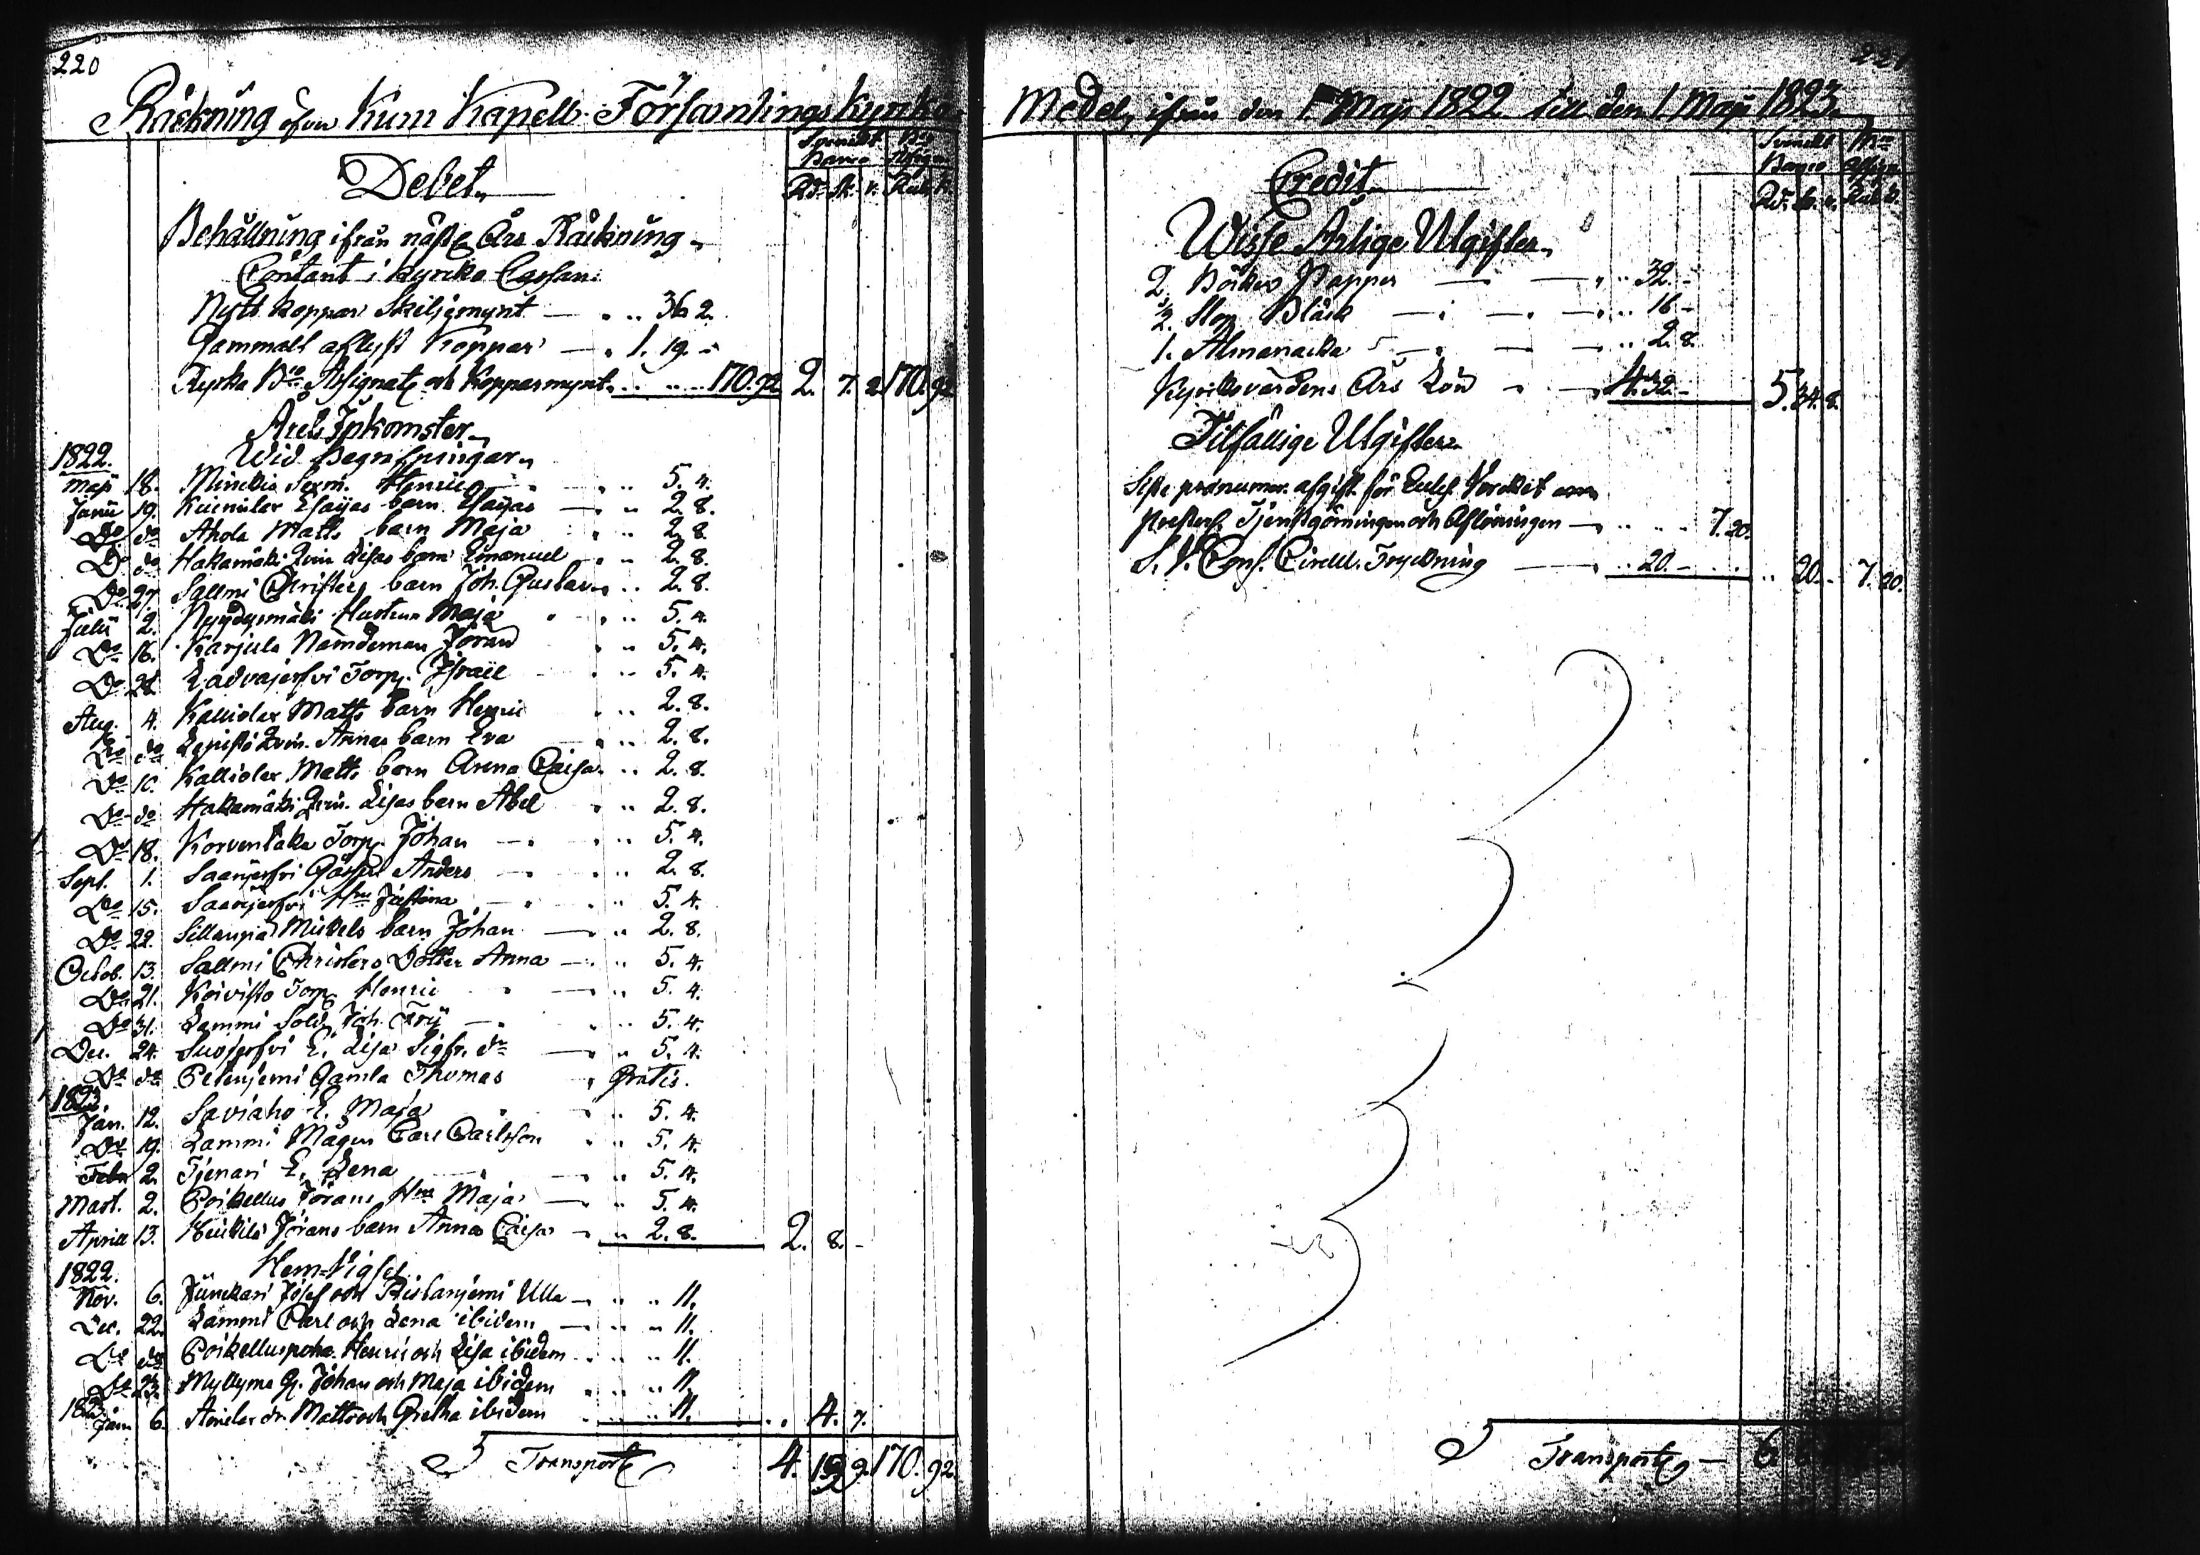 220
Räkning öfver Kum Kapells Församlings Kyrko
Svenskt Banco
Debet
Rd. sk. r. Rub. k.
Behållning ifrån näste Års Räkning
Contant i Kyrko Cassan:
Nytt koppar Skiljemynt 36. 2.
Gammalt aflyst Koppar 1. 19.
Ryska Bco Assignat. och Kopparmynt 170.92 2. 7. 2 170.92
Årets Inkomster
1822. Wid Begrafningar
Maji 18. Henric 5. 4.
Junii 19. Esaias barn Esaias 2. 8.
Do do Ahola Matts barn Maja 2. 8.
Do do Hakamäki Qvin. Lisas barn Emanuel 2. 8.
Do 27. Sallmi Christers barn Joh. Gustav 2. 8.
Julii 2. Hustrun Maja 5. 4.
Do 16. Karjula Nämdeman Jöran 5. 4.
Do 28. Torp. Israel 5. 4.
Aug. 4. Kalliolax Matts barn Henric 2. 8.
Do do Lepistö Qvin. Annas barn Eva 2. 8.
Do 10. Kalliolax Matts barn Anna Caisa 2. 8.
Do do Hakamäki Qvin. Lisas barn Abel 2. 8.
Do 18. Korvenlaka Torp. Johan 5. 4.
Sept. 1. Saarijerfvi Anders 2. 8.
Do 15. Saarijerfvi Hru Justina 5. 4.
Do 22. Sillanpää Mickels barn Johan 2. 8.
Octob. 13. Sallmi Christers Dotter Anna 5. 4.
Do 21. Koivisto Torp. Henric 5. 4.
Do 31. Lammi Sold. Joh. Frij 5. 4.
Dec. 24. E. Lisa Sigfr. dr 5. 4.
Do do Petenjemi Gamla Thomas Gratis.
1823
Jan. 12. Saviaho E. Maja 5. 4.
Do 19. Lammi Mågen Carl Carlsson 5. 4.
Febr 2. Tjenari E. Lena 5. 4.
Mart. 2. Poikellus Jörans Hru Maja 5. 4.
April 13. Heikilä Jörans barn Anna Caisa 2. 8. 2. 8. -
1822. Hem-Vigsel
Nov. 6. Junckari Josef och Ristanjemi Ulla 11.
Dec. 22. Lammi Carl och Lena ibidem 11.
Do do Poikelluspoha Henric och Lisa ibidem 11.
Do 23. Myllymä G. Johan och Maja ibidem 11.
1823
Jan 6. Matts och Gretha ibidem 11. 4. 7.
Transport 4. 19 9. 170. 92.
221
Medel, ifrån den 1 Maji 1822 till den 1 Maji 1823
Svenskt Banco
Credit
Rd. sk. r. Rub. k.
Wisse Årlige Utgifter
2 Böcker Papper 32. -
1/2 Stop Bläck 16 -
1. Almanacka 2. 8.
Kyrkovärdens Års Lön 4. 32. - 5. 34. 8.
Tilfällige Utgifter
prænumer. afgift för Eccles. Verket om
Presters Tjenstgöringen och Aflöningen 7. 20.
Cons. Circul. Tryckning 20. - 20. - 7. 20.
Transport 6